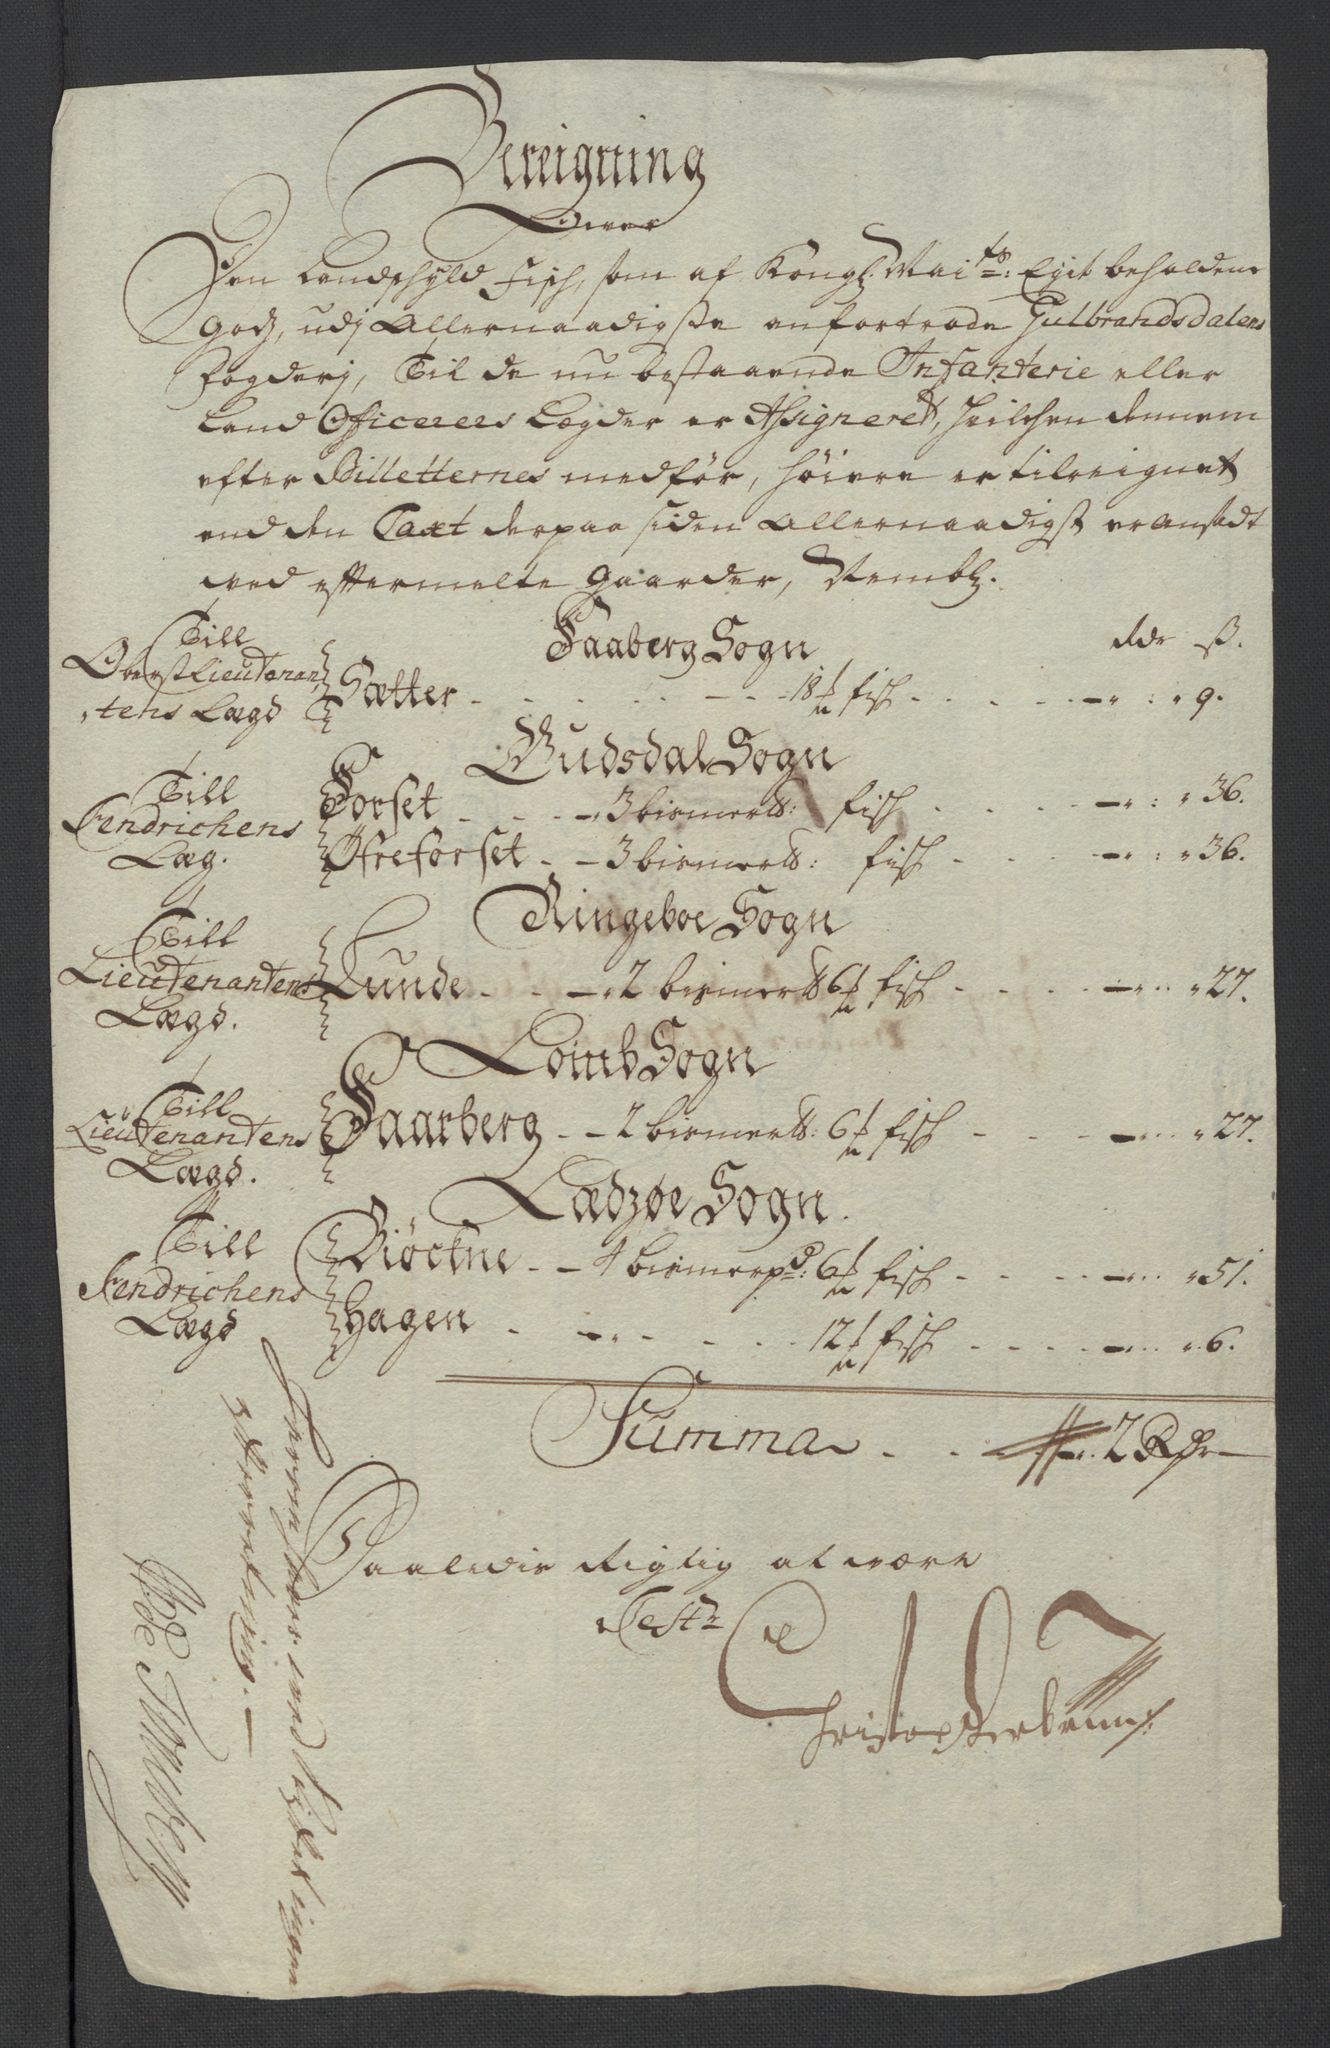 Bereigning
Over
Den Landschyld fisch, som af Kongl. Mai.ts: Eget beholdene
Godz, udj Allernaadigste anfortrode Gulbrandsdalens
fogderj, Til de nu bestaaende Infanterie eller
Land Officerers Lægder er Assigneret, hvilchen dennem
efter Billetternes medfør, høiere er tilreignet
end den Taxt derpaa siden Allernaadigst er ansadt
ved eftermelte Gaarder, Nembl.
Faaberg Sogn
rdr ß.
Till
Oberst Lieutenan,
,tens Lægd
Sætter - - - 18 ℔ fisch - - - „ : „ 9.
Gudsdal Sogn
Till
Fendrichens
Læg.
Forset - - - 3 bismer℔: fisch - - - „ : „ 36.
Øfreforset - - 3 bismer℔: fisch - - - „ : „ 36.
Ringeboe Sogn
Till
Lieutenantens
Lægd.
Lunde - - - 2 bismer℔ 6 ℔ fisch - - - „ : „ 27.
Lomb Sogn
Till
Lieutenantens
Lægd.
Faarberg - - 2 bismer℔: 6 ℔ fisch - - - „ : „ 27.
Ladzøe Sogn.
Till
Fendrichens
Lægd
Giøctne - - 4 bismerpd: 6 ℔ fisch - - - „ : „ 51.
Hagen - - - 12 ℔ fisch - - - „ : „ 6.
Summa - - - 2 Rdr
Saaledis Rigtig at være
Test: